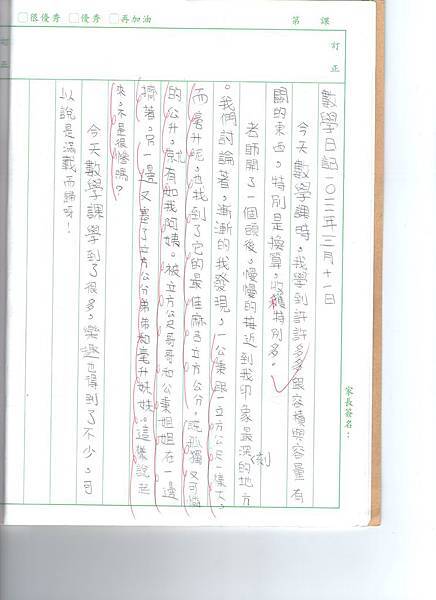 □很優秀 □優秀 □再加油
第 課
訂正
訂正
家長簽名：
數學日記一0三年三月十一日
今天數學課時，我學到許許多多跟容積與容量有
關的東西，特別是換算，收穫特別多。
老師開了一個頭後，慢慢的接近到我印象最深的地方
刻
。我們討論著，漸漸的我發現，一公秉跟一立方公尺一樣大，
而毫升呢，也找到了它的最佳麻吉立方公分，既孤獨又可憐
的公升，就有如我阿姨。被立方公尺哥哥和公秉姐姐在一邊
地
擠著，另一邊又塞了立方公分弟弟和毫升妹妹。這樣說起
來，不是很慘嗎？
今天數學課學到了很多，樂趣也得到了不少，可
以說是滿載而歸呀！